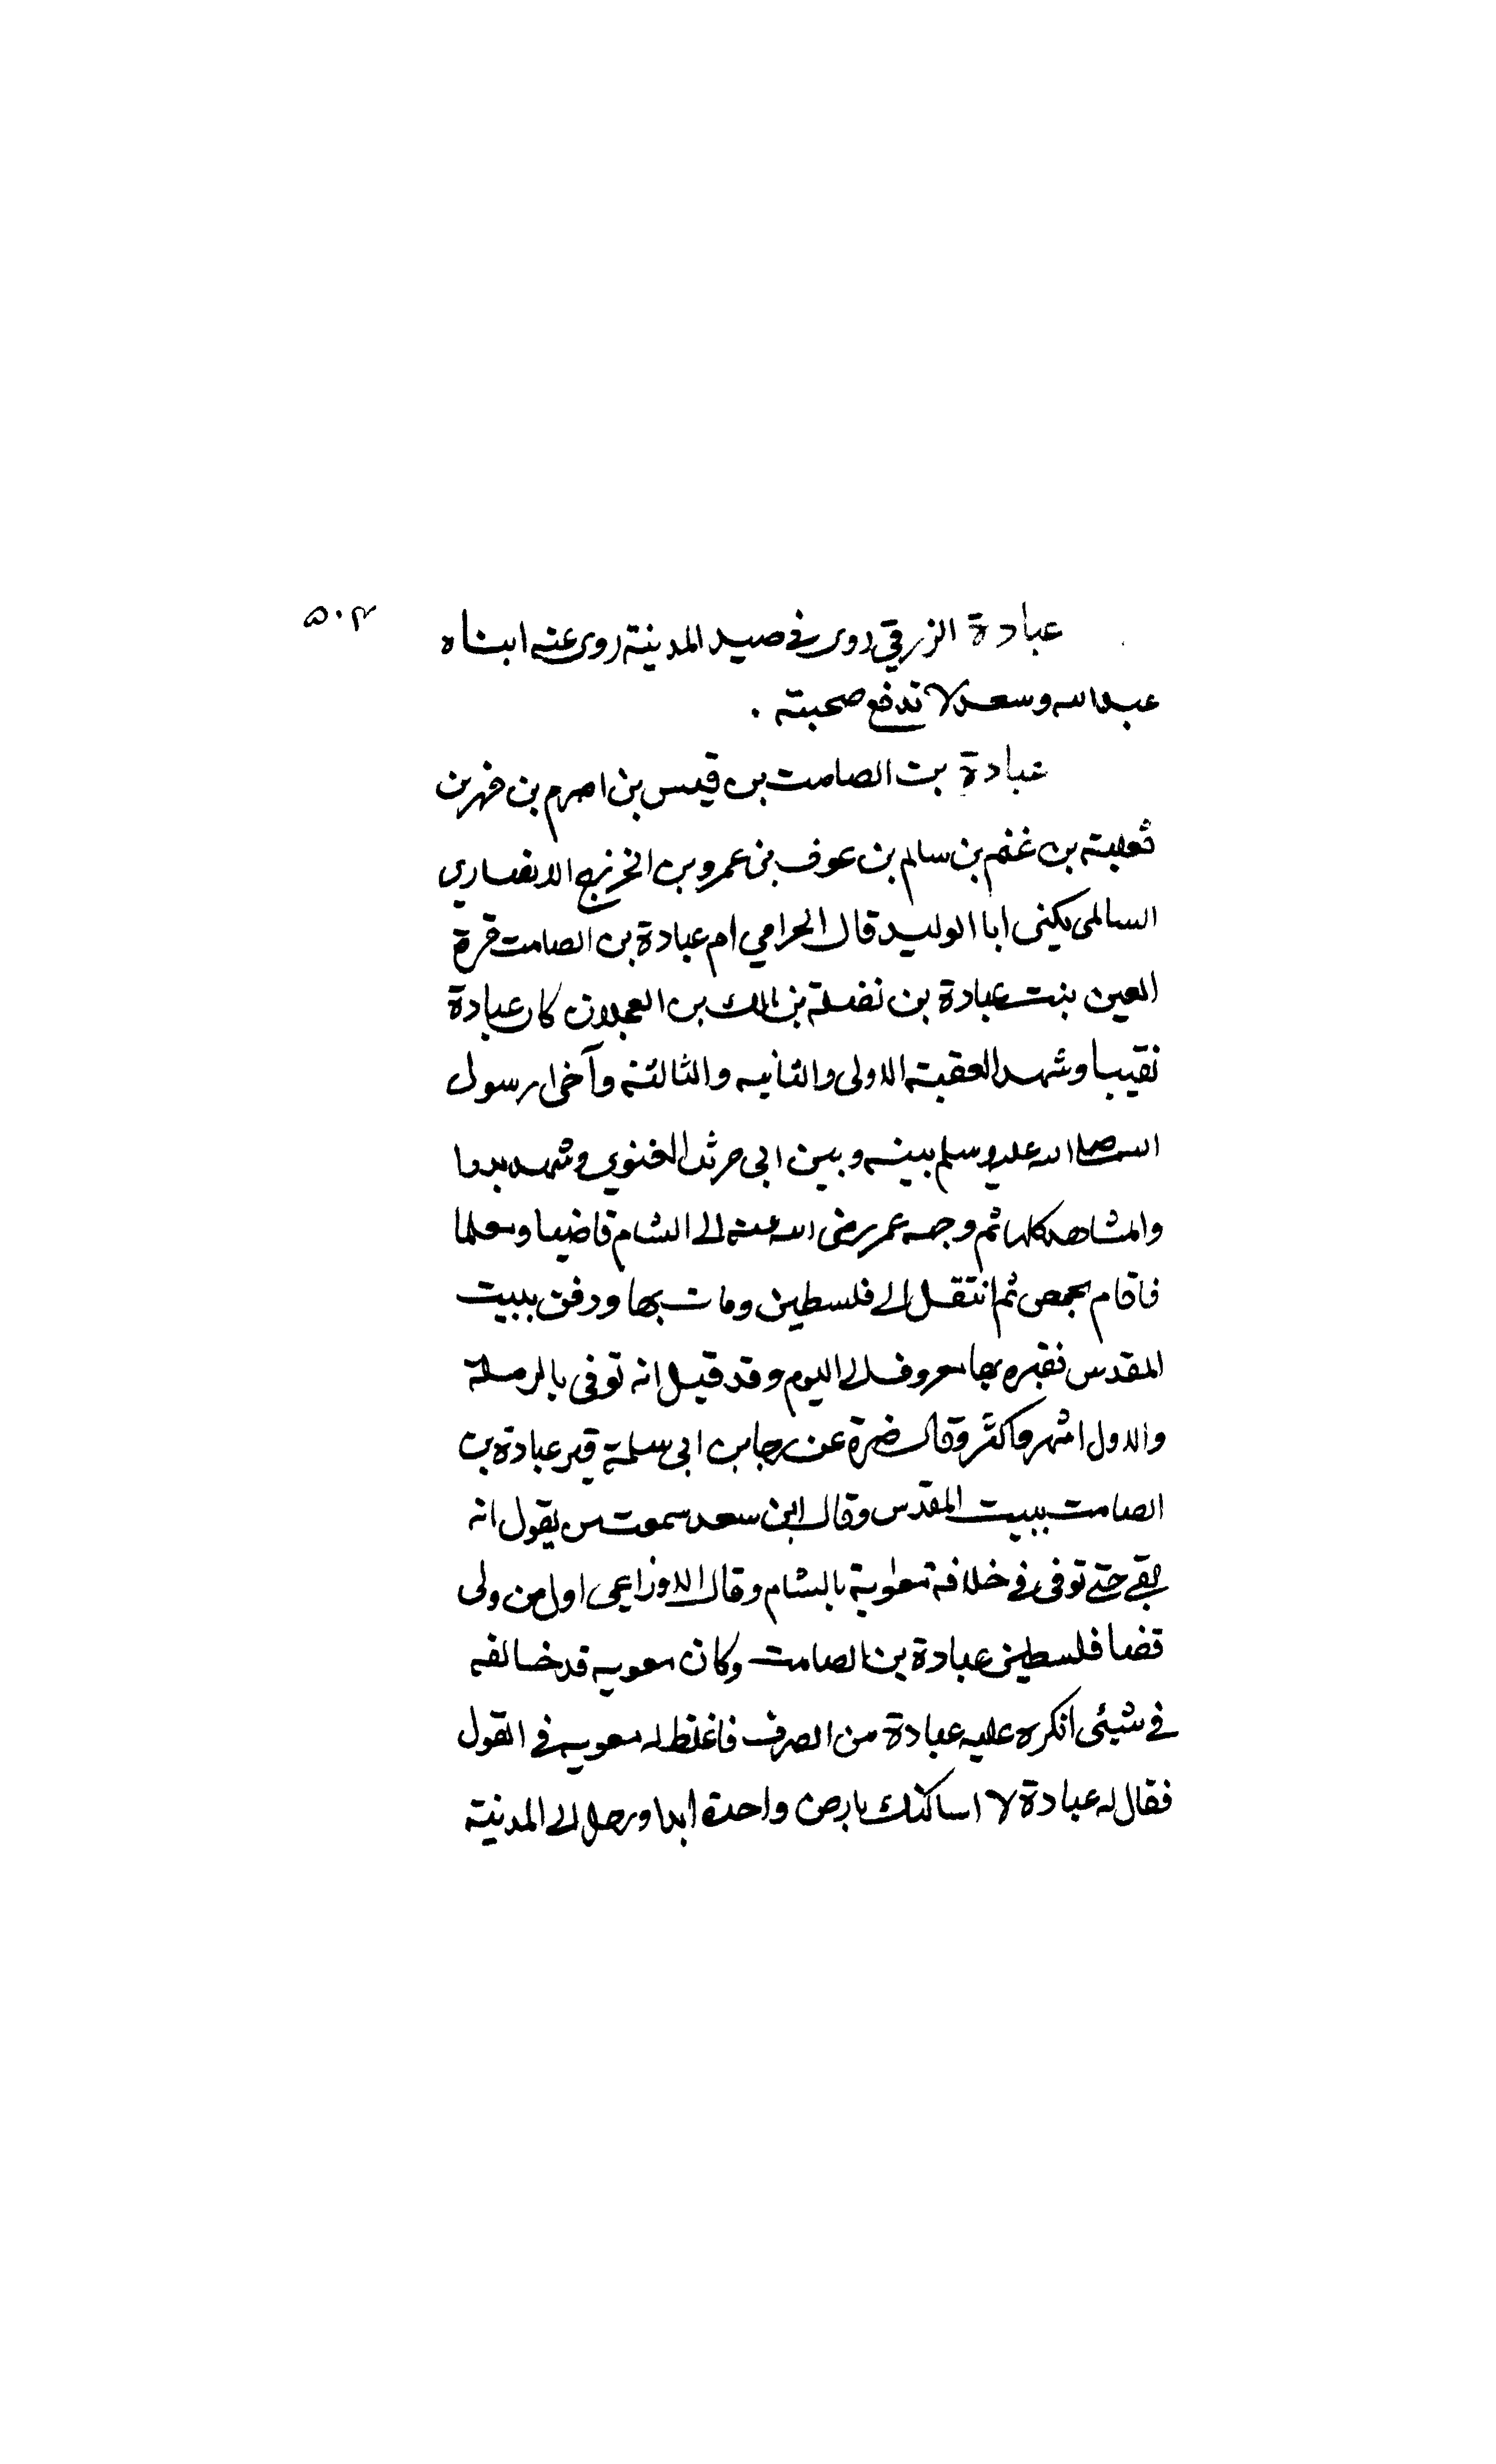 عبادة الزرقي روى في صيد المدينة روى عنه ابناه
۵۰۴
عبدالله وسعد لا تدفع صحبته .
عبادة بن الصامت بن قيس بن اصرم بن فهر بن
ثعلبة بن غنم بن سالم بن عوف بن عمرو بن الخزرج الانصاري
السالمى يكنى ابا الوليد قال الحرامي ام عبادة بن الصامت قرة
العين بنت عبادة بن نضلة بن مالك بن العجلان كان عبادة
نقيبا وشهد العقبة الاولى والثانيه والثالثة وآخى رسول
الله صلى الله عليه وسلم بينه وبين ابى مرثد الغنوي وشهد بدرا
والمشاهد كلها ثم وجهه عمر رضى الله عنه الى الشام قاضيا ومعلما
فاقام بحمص ثم انتقل الى فلسطين ومات بها ودفن ببيت
المقدس فقبره بها معروف الى اليوم وقد قيل انه توفى بالرملة
والاول اشهر واكثر وقال ضمرة عن رجا بن ابى سلمة قبر عبادة بن
الصامت ببيت المقدس وقال ابن سعد سمعت من يقول انه
بقى حتى توفى فى خلافة معاوية بالشام وقال الاوزاعى اول من ولى
قضا فلسطين عبادة بن الصامت وكان معويه قد خالفه
في شيئى انكره عليه عبادة من الصرف فاغلظ له معويه في القول
فقال له عبادة لا اساكنك بارض واحدة ابدا ورحل الى المدينة